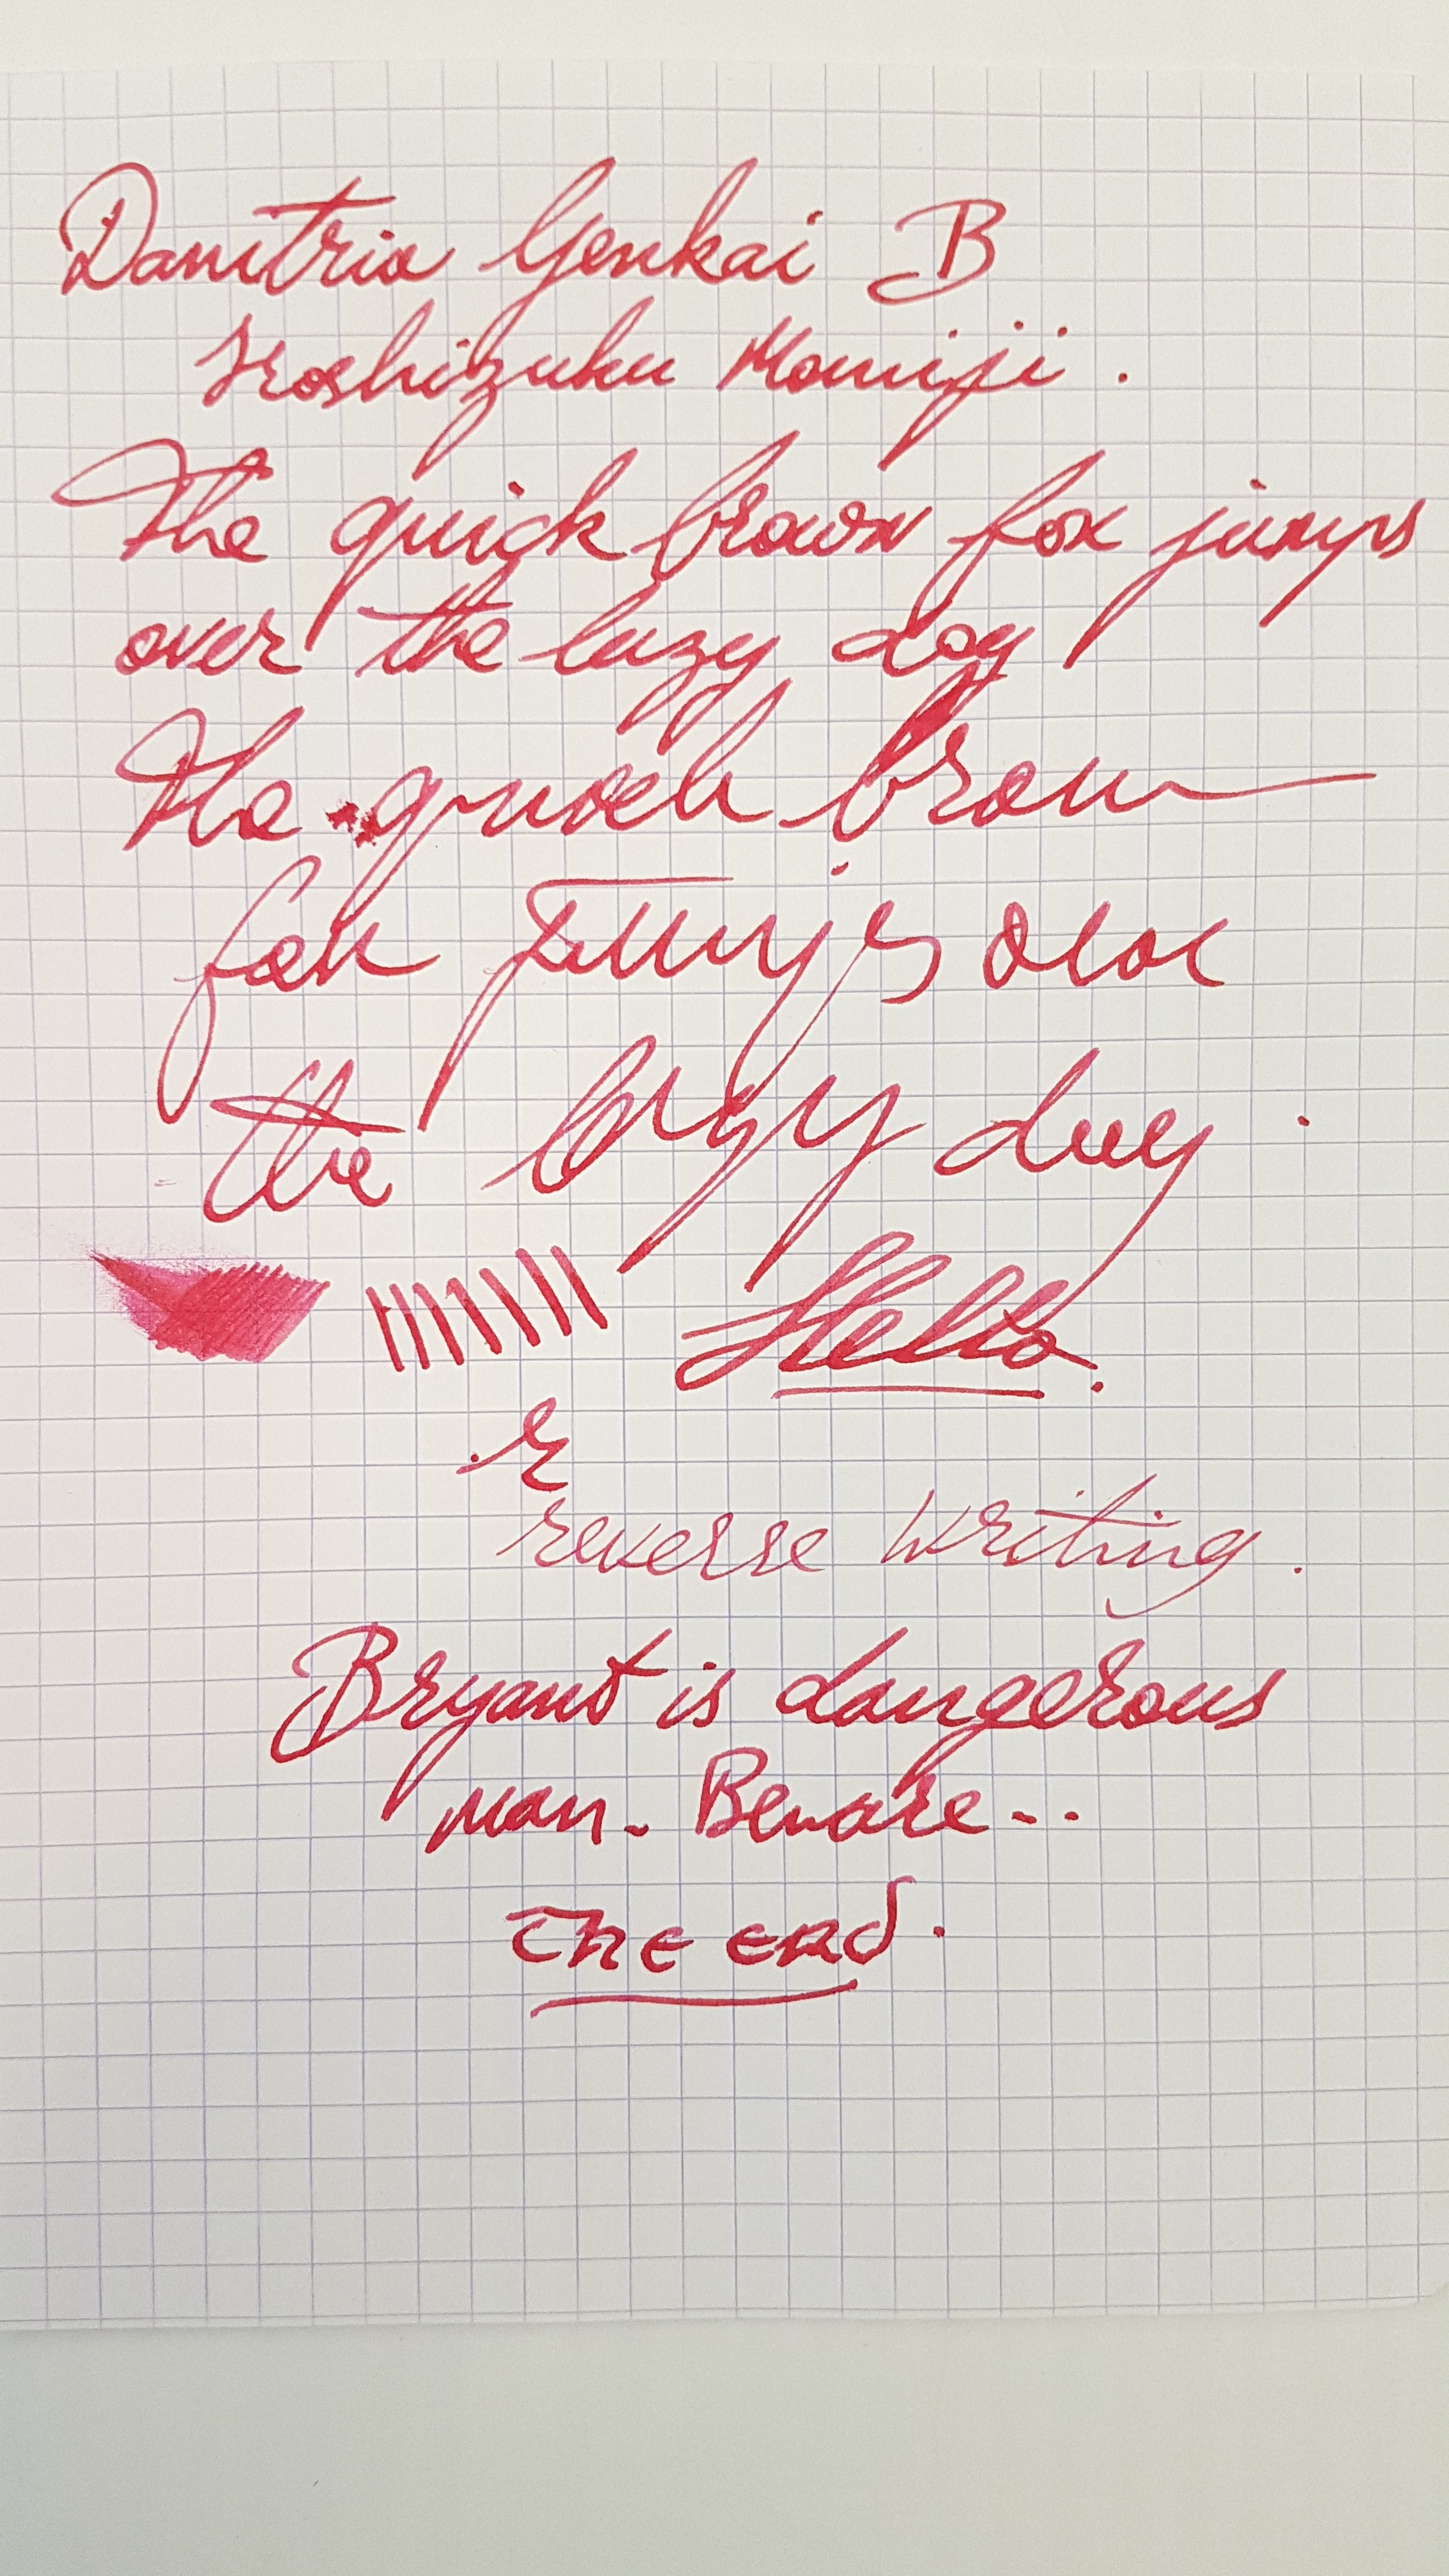 Danitrio Genkai B
Iroshizuku Momiji.
The quick brown fox jumps
over the lazy dog
The quick brown
fox jumps over
the lazy dog.
Hello.
reverse writing.
Bryant is dangerous
man. Beware...
The end.